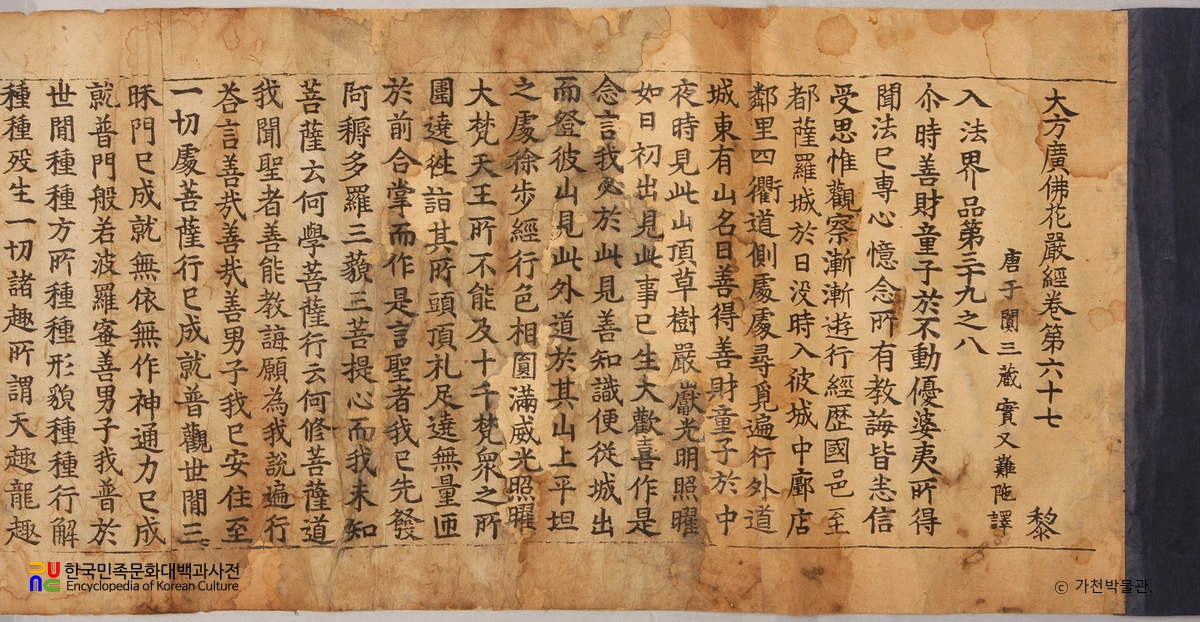 大方廣佛花嚴經卷第六十七 黎
唐于闐三藏實叉難陁 譯
入法界品第三十九之八
尒時善財童子於不動優婆夷所得
聞法已専心憶念所有教誨皆悉信
受思惟觀察漸漸遊行經歷國邑至
都薩羅城於日没時入彼城中廊店
鄰里四衢道側處處尋覓遍行外道
城東有山名曰善得善財童子於中
夜時見此山頂草樹嚴巘光明照曜
如日初出見此事已生大歡喜作是
念言我必於此見善知識便從城出
而登彼山見此外道於其山上平坦
之處徐步經行色相圓滿威光照曜
大梵天王所不能及十千梵衆之所
圍遶徃詣其所頭頂礼足遶無量匝
於前合掌而作是言聖者我已先發
阿耨多羅三藐三菩提心而我未知
菩薩云何學菩薩行云何修菩薩道
我聞聖者善能教誨願為我說遍行
荅言善哉善哉善男子我已安住至
一切處菩薩行已成就普觀世間三
昧門已成就無依無作神通力已成
就普門般若波羅蜜善男子我普於
世間種種方所種種形貌種種行解
種種歿生一切諸趣所謂天趣龍趣
한국민족문화대백과사전
Encyclopedia of Korean Culture
ⓒ 가천박물관.